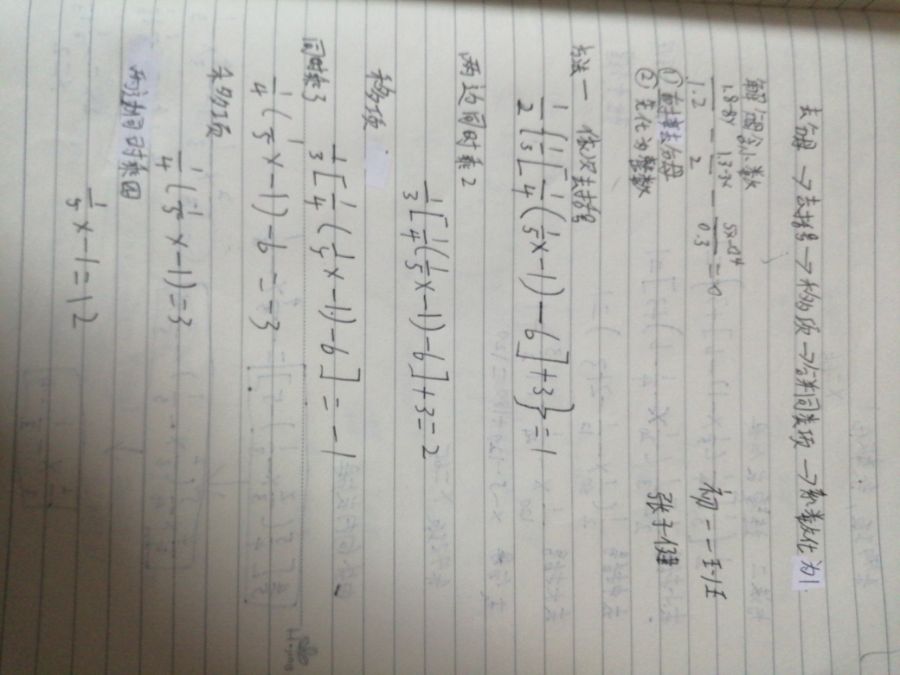 去分母→去括号→移项→合并同类项→系数化为1
初一十八班
解:分母含小数
张子健
1.8-8x/1.2 - 1.3-3x/2 - 5x-0.4/0.3 = 0
①直接去分母
②先化为整数
方法一 依次去括号
1/2{1/3[1/4(1/5x-1)-6]+3}=1
两边同时乘2
1/3[1/4(1/5x-1)-6]+3=2
移项
1/3[1/4(1/5x-1)-6]=-1
同时乘3
1/4(1/5x-1)-6=-3
移项
1/4(1/5x-1)=3
两边同时乘四
1/5x-1=12